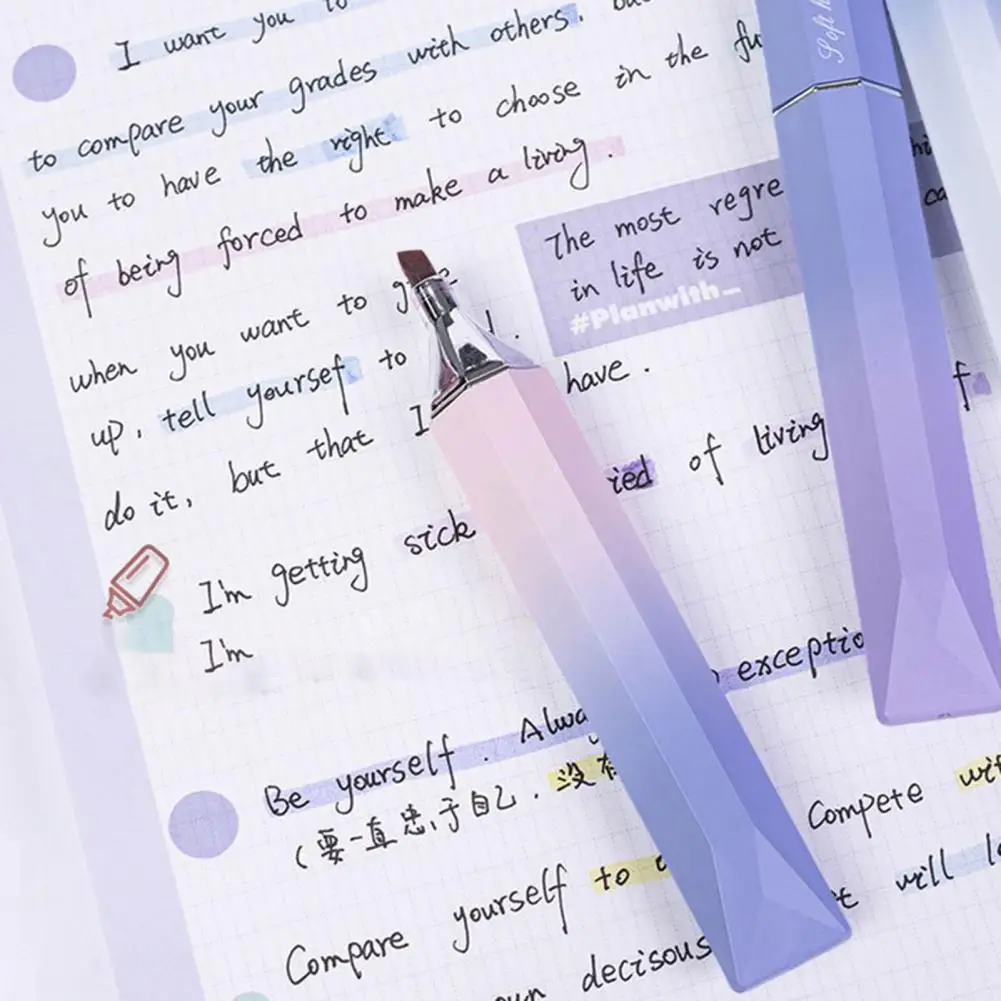 I want you to
to compare your grades with others.
you to have the right to choose in the fu
of being forced to make a living.
The most regre
in life is not
#Planwith_
when you want to
up, tell yoursef to
have.
do it, but that I
I'm getting sick
ied of living
I'm
exceptio
Be yourself. Alwa
(要一直忠于自己. 没有
Compete wit
Compare yourself to
will
decisous
Soft